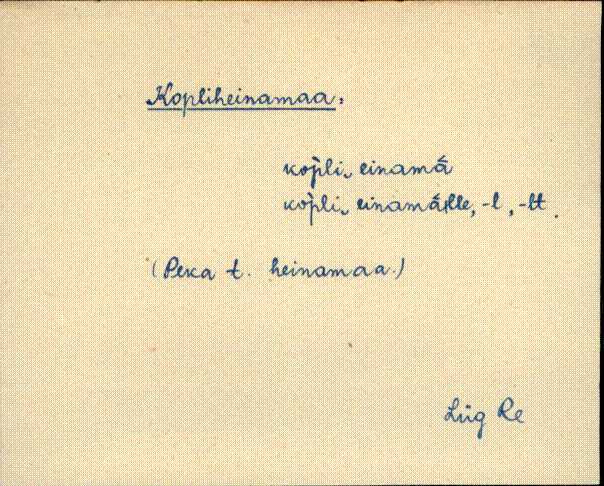 Kopliheinamaa:
kop̀li‿einamā́
kop̀li‿einamā́lle, -l, -lt.
(Peka t. heinamaa.)
Lüg Re